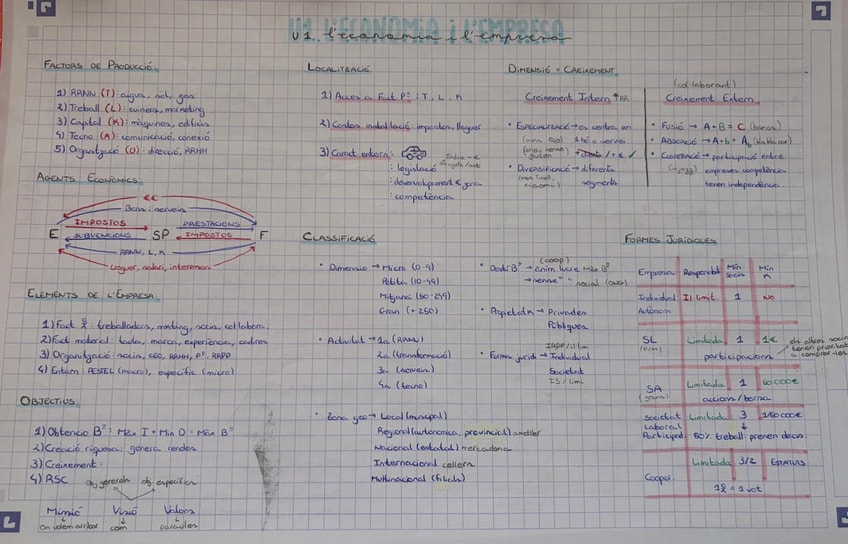 U1. L'ECONOMIA I L'EMPRESA
U1. l'economia i l'empresa
FACTORS DE PRODUCCIÓ
1) RRNN (T): aigua, sol, gas
2) Treball (L): cuinera, marketing
3) Capital (K): màquines, edificis
4) Tecno (A): comunicació, conexió
5) Organització (O): direcció, RRHH
AGENTS ECONÒMICS
€€
Bens i serveis
IMPOSTOS PRESTACIONS
E SP F
SUBVENCIONS IMPOSTOS
RRNN, L, K
lloguer, salari, interessos
ELEMENTS DE L'EMPRESA
1) Fact : treballadors, màting, socis, col·labora
2) Fact material: taula, marca, experiència, cadires
3) Organització: socis, CEO, RRHH, Pº, RRPP
4) Entorn PESTEL (macro), específic (micro)
OBJECTIUS
1) Obtenció Bº: Màx I + Min D = Màx Bº
2) Creació riquesa: genera rendes
3) Creixement:
4) RSC
obj generals obj específics
Missió Visió Valors
on volem arribar com paraules
LOCALITZACIÓ
1) Acces a Fact Pº: T, L, K
2) Costos instal·lació: impostos, lloguer
3) Caract entorn:
: legislació
: desenvolupament € zona
: competència
CLASSIFICACIÓ
• Dimensió → Micro (0-9)
Petita (10-49)
Mitjana (50-249)
Gran (+250)
• Activitat → 1a (RRNN)
2a (transformació)
3a (serveis)
4a (tecno)
• Zona geo → Local (municipal)
Regional (autonomica, provincial) ametller
Nacional (estatal) mercadona
Internacional
Multinacional (filials)
DIMENSIÓ = CREIXEMENT
Creixement Intern
• Especialització → es centra en
1 bé o servei
• Diversificació → diferents
segments
(col·laborant)
Creixement Extern
• Fusió → A + B = C (bancs)
• Absorció → A + b = A
• Cooperació → participació entre
empreses competència
tenen independència
(coop)
• Destí Bº → ànim lucre Màx Bº
→ sense " social (ONG)
• Propietat K → Privades
Públiques
IRPF/il·lim
• Forma juridi → Individual
Societat
IS / limi
FORMES JURÍDIQUES
Empresa Responsabil Mín socis Mín K
Individual Il·limit 1 No
Autònom
SL Limitada 1 1€
participacions
els altres socis
tenen prioritat
a comprar-les
SA Limitada 1 60 000€
accions / borsa
Societat Limitada 3 1/60 000€
Laboral
Participed: 50% treball: prenen decis.
Cooper. Limitada 3/2 ESTATUTS
1 = 1 vot